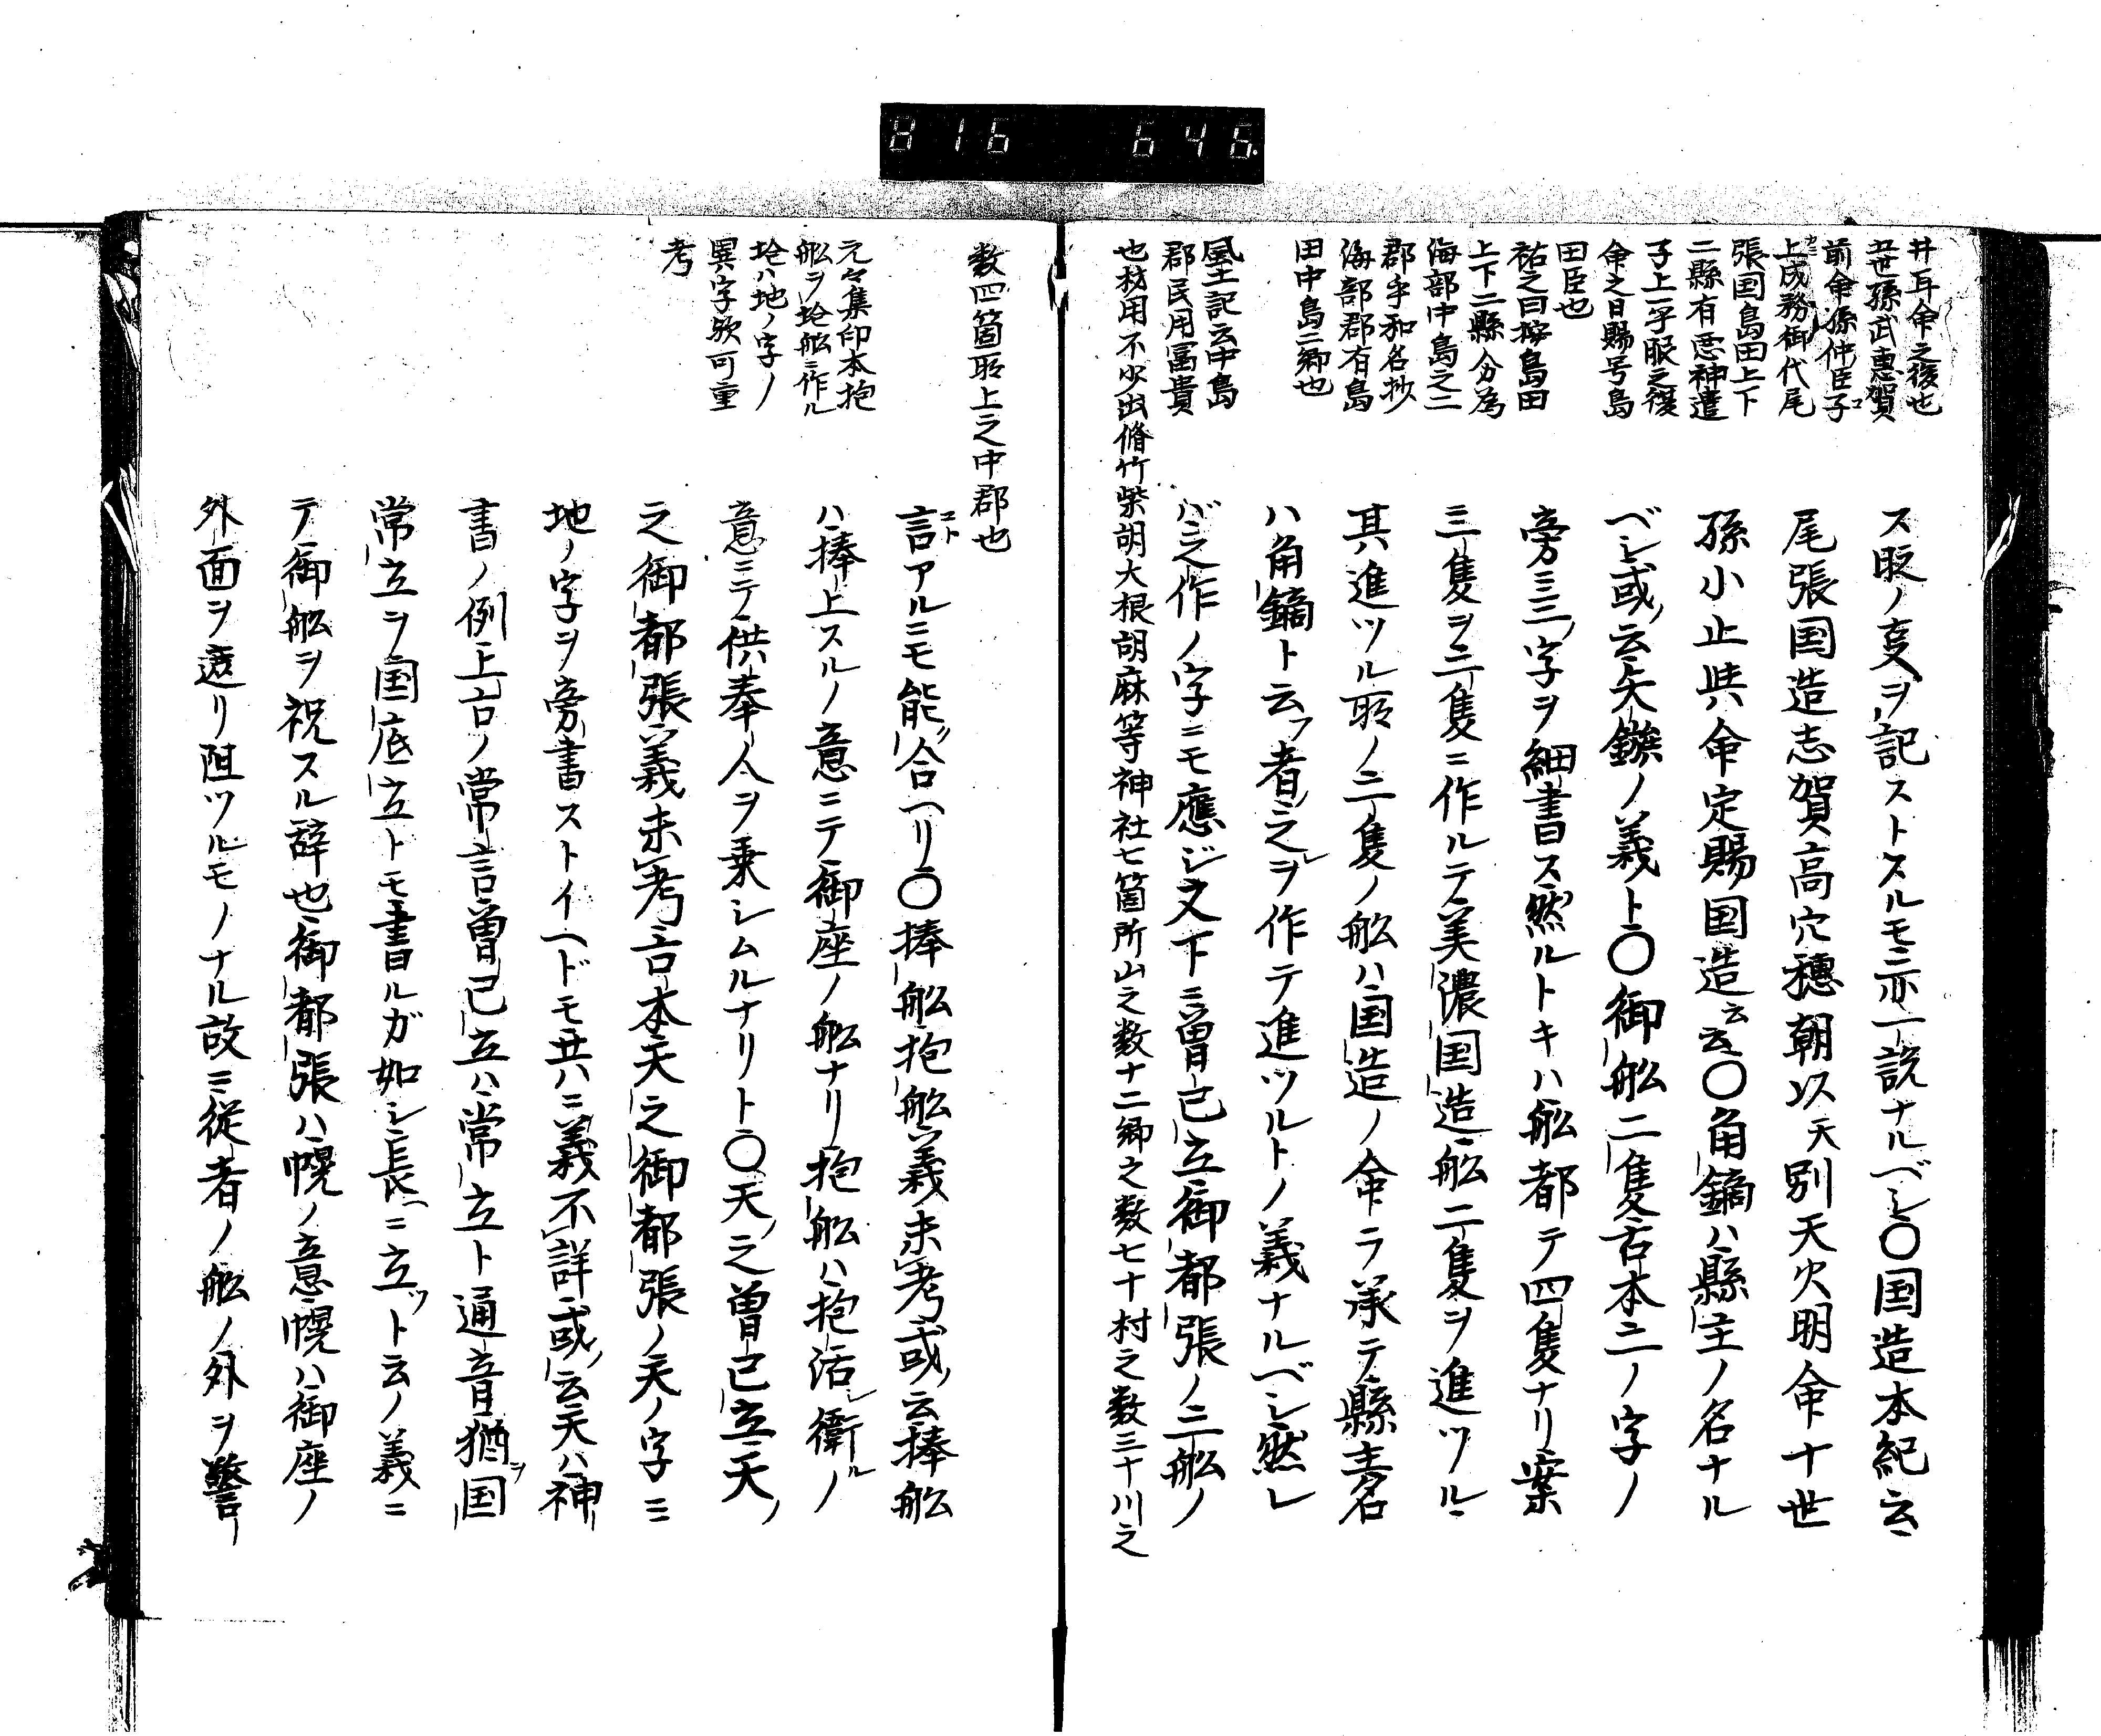 816 646
井耳命之後也
廿世孫武恵賀
前命孫仲臣子
上成務御代尾
張国島田上下
二縣有悪神遣
子上平服之復
命之日賜号島
田臣也
祐之曰按島田
上下二縣分為
海部中島之二
郡乎和名抄
海部郡有島
田中島三郷也
風土記云中島
郡民用冨貴
也材用不少出脩竹柴胡大根胡麻等神社七箇所山之数十二郷之数七十村之数三十川之
ス貶ノ叓ヲ記ストスルモ亦一説ナルベシ〇国造本紀云
尾張国造志賀高穴穂朝以天別天火明命十世
孫小止與命定賜国造云云〇角鏑ハ縣主ノ名ナル
ベシ或云矢鏃ノ義ト〇御舩二隻古本二ノ字ノ
旁ニ三字ヲ細書ス然ルトキハ舩都テ四隻ナリ案
三隻ヲ二隻ニ作ルテ美濃国造舩二隻ヲ進ツル
其進ツル所ノ二隻ノ舩ハ国造ノ命ヲ承テ縣主名
ハ角鏑ト云フ者之レヲ作テ進ツルトノ義ナルベシ然レ
バ之作ノ字ニモ應ジ文下ニ曽己立御都張ノ二舩ノ
数四箇所上之中郡也
元々集印本抱
舩ヲ玱舩ニ作ル
玱ハ地ノ字ノ
異字歟可重
考
言アルニモ能合ヘリ〇捧舩抱舩義未考或云捧舩
ハ捧上スルノ意ニテ御座ノ舩ナリ抱舩ハ抱活シ衛ルノ
意ニテ供奉人ヲ乗シムルナリト〇天之曽己立天
之御都張義未考古本天之御都張ノ天ノ字ニ
地ノ字ヲ旁書ストイヘドモ共ニ義不詳或云天ハ神
書ノ例上古ノ常言曽己立ハ常立ト通音猶ヲ国
常立ヲ国底立トモ書ルガ如シ長ニ立ツト云ノ義ニ
テ御舩ヲ祝スル辞也御都張ハ幌ノ意幌ハ御座ノ
外面ヲ遮リ阻ツルモノナル故ニ従者ノ舩ノ外ヲ警